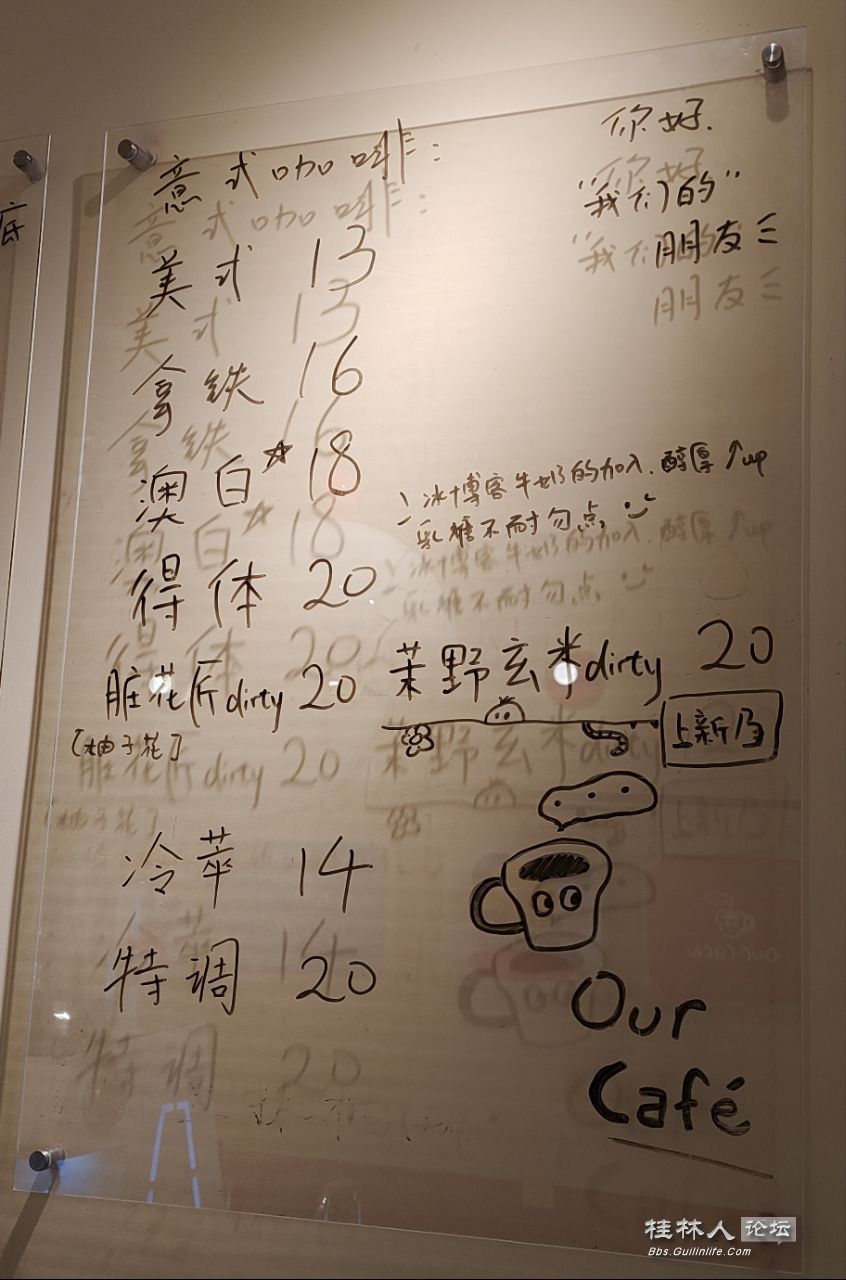 意式咖啡:
美式 13
拿铁 16
澳白☆ 18
得体 20
脏花匠dirty 20
[柚子花]
冷萃 14
特调 20
你好.
"我们的"
朋友
冰博客牛奶的加入.醇厚↑up
乳糖不耐勿点,
茉野玄米dirty 20
上新
Our
Café
底
桂林人论坛
Bbs.Guilinlife.Com